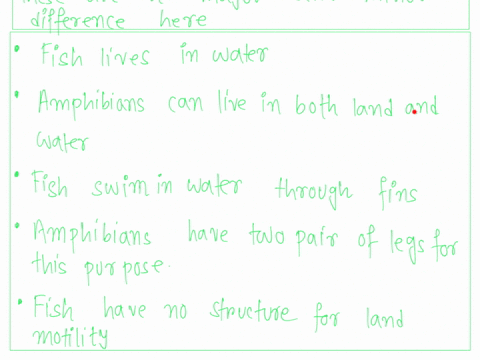 difference here
• Fish lives in water
• Amphibians can live in both land and
water
• Fish swim in water through fins
• Amphibians have two pair of legs for
this purpose.
• Fish have no structure for land
motility